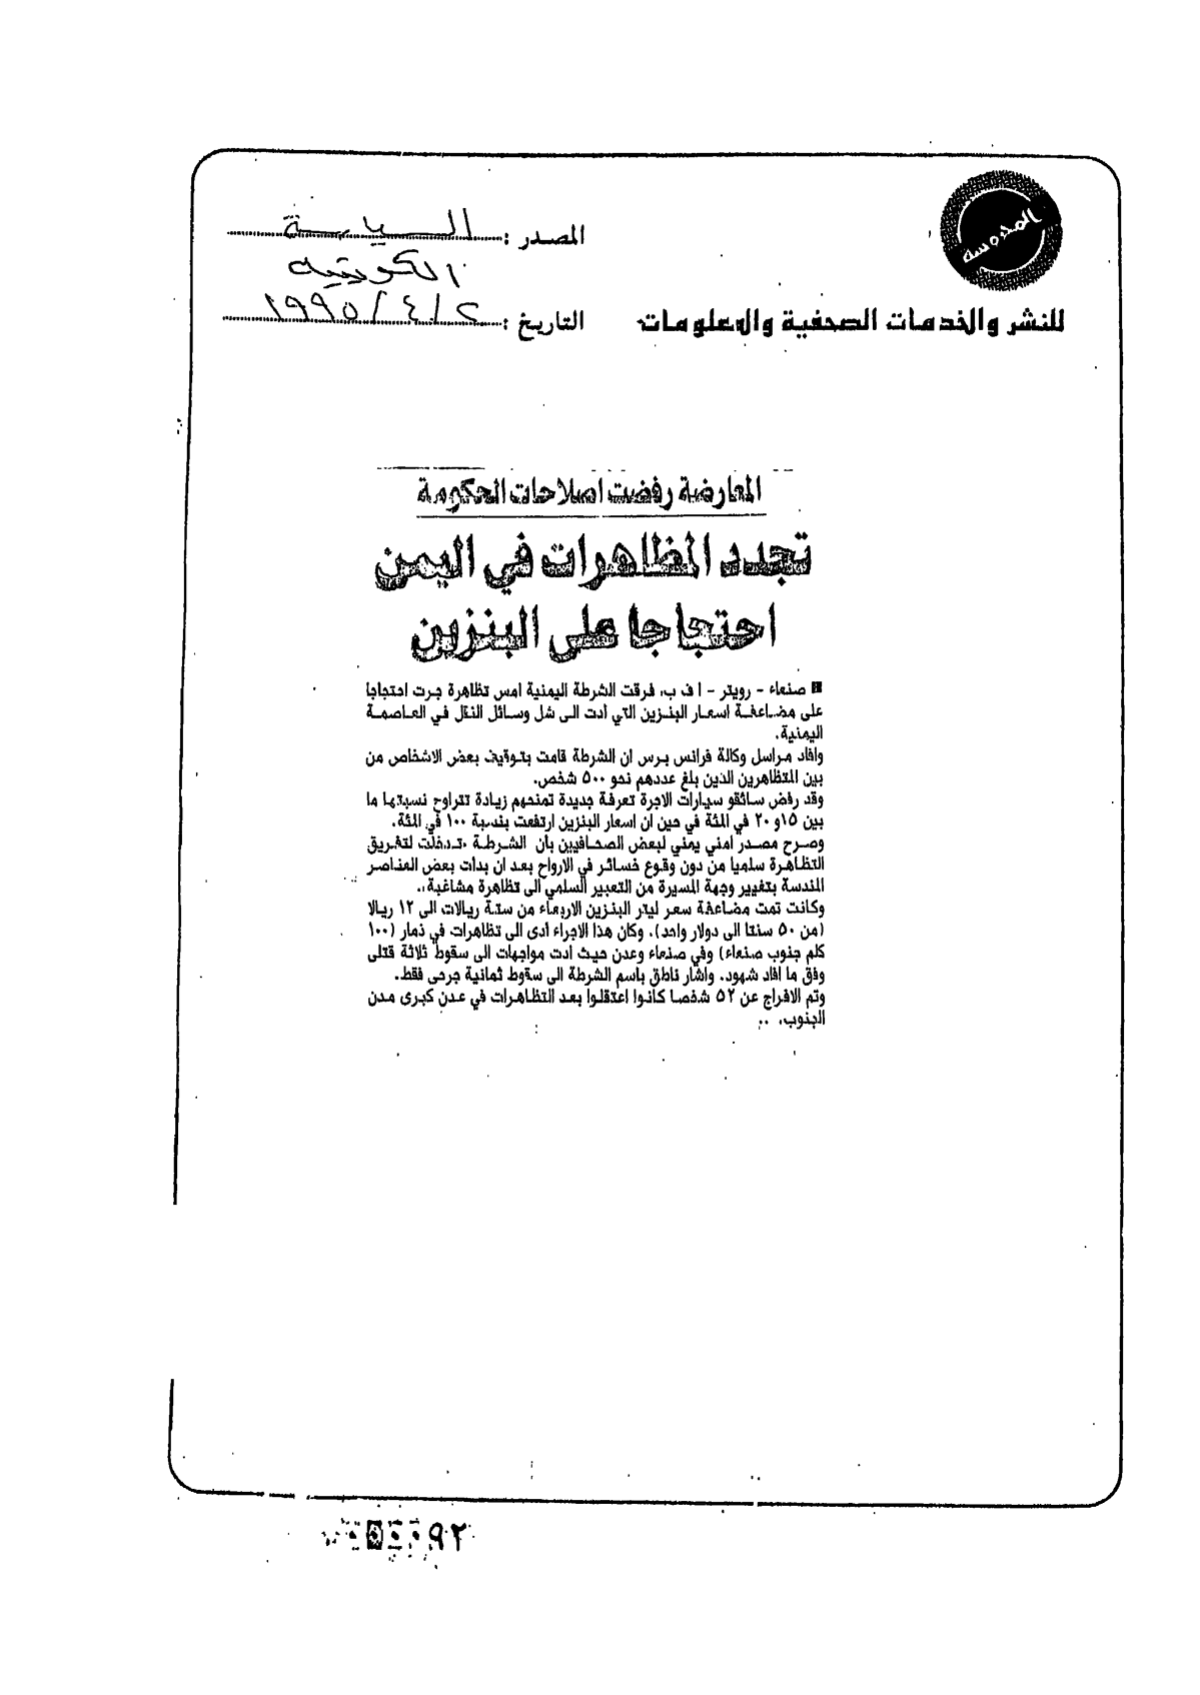 المحروسة
المصدر : السياسة
الكويتية
للنشر والخدمات الصحفية والمعلومات
التاريخ : ٢/٤/١٩٩٥
المعارضة رفضت اصلاحات الحكومة
تجدد المظاهرات في اليمن
احتجاجا على البنزين
صنعاء - رويتر - ا ف ب، فرقت الشرطة اليمنية امس تظاهرة جرت احتجاجا
على مضاعفة اسعار البنزين التي أدت الى شل وسائل النقل في العاصمة
اليمنية.
وافاد مراسل وكالة فرانس برس ان الشرطة قامت بتوقيف بعض الاشخاص من
بين المتظاهرين الذين بلغ عددهم نحو ٥٠٠ شخص.
وقد رفض سائقو سيارات الاجرة تعرفة جديدة تمنحهم زيادة تتراوح نسبتها ما
بين ١٥و ٢٠ في المئة في حين ان اسعار البنزين ارتفعت بنسبة ١٠٠ في المئة.
وصرح مصدر امني يمني لبعض الصحافيين بأن الشرطة «تدخلت لتفريق
التظاهرة سلميا من دون وقوع خسائر في الارواح بعد ان بدات بعض العناصر
المندسة بتغيير وجهة المسيرة من التعبير السلمي الى تظاهرة مشاغبة».
وكانت تمت مضاعفة سعر ليتر البنزين الاربعاء من ستة ريالات الى ١٢ ريالا
(من ٥٠ سنتا الى دولار واحد). وكان هذا الاجراء ادى الى تظاهرات في ذمار (١٠٠
كلم جنوب صنعاء) وفي صنعاء وعدن حيث ادت مواجهات الى سقوط ثلاثة قتلى
وفق ما افاد شهود. واشار ناطق باسم الشرطة الى سقوط ثمانية جرحى فقط.
وتم الافراج عن ٥٢ شخصا كانوا اعتقلوا بعد التظاهرات في عدن كبرى مدن
الجنوب.